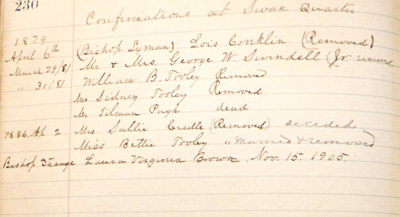 230
Confirmations at Swan Quarter
1879
April 6th (Bishop Lyman) Lois Conklin (Removed)
March 29/81 Mr & Mrs. George W Swindell (Jr. removed
" 30/81 William B. Tooley Removed
Mrs Sidney Tooley Removed
Mr Tilman Pugh dead
1886 Ap 2 Mrs Sallie Credle (Removed) seceded
Miss Bettie Tooley " Married & removed
Bishop Strange Laura Virginia Brown Nov. 15. 1905.